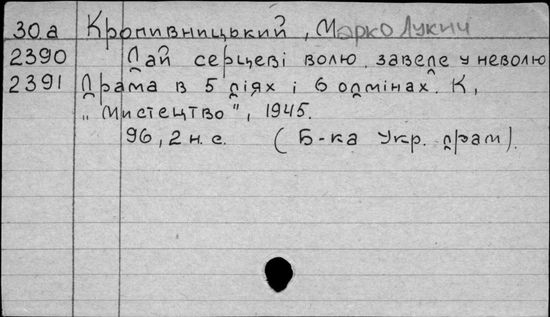 30.а Кропивницький, Марко Лукич
2390 Дай серцеві волю, заведе у неволю
2391 Драма в 5 діях і 6 одмінах. К,
„Мистецтво", 1945.
96, 2 н. с. (Б-ка Укр. драм).